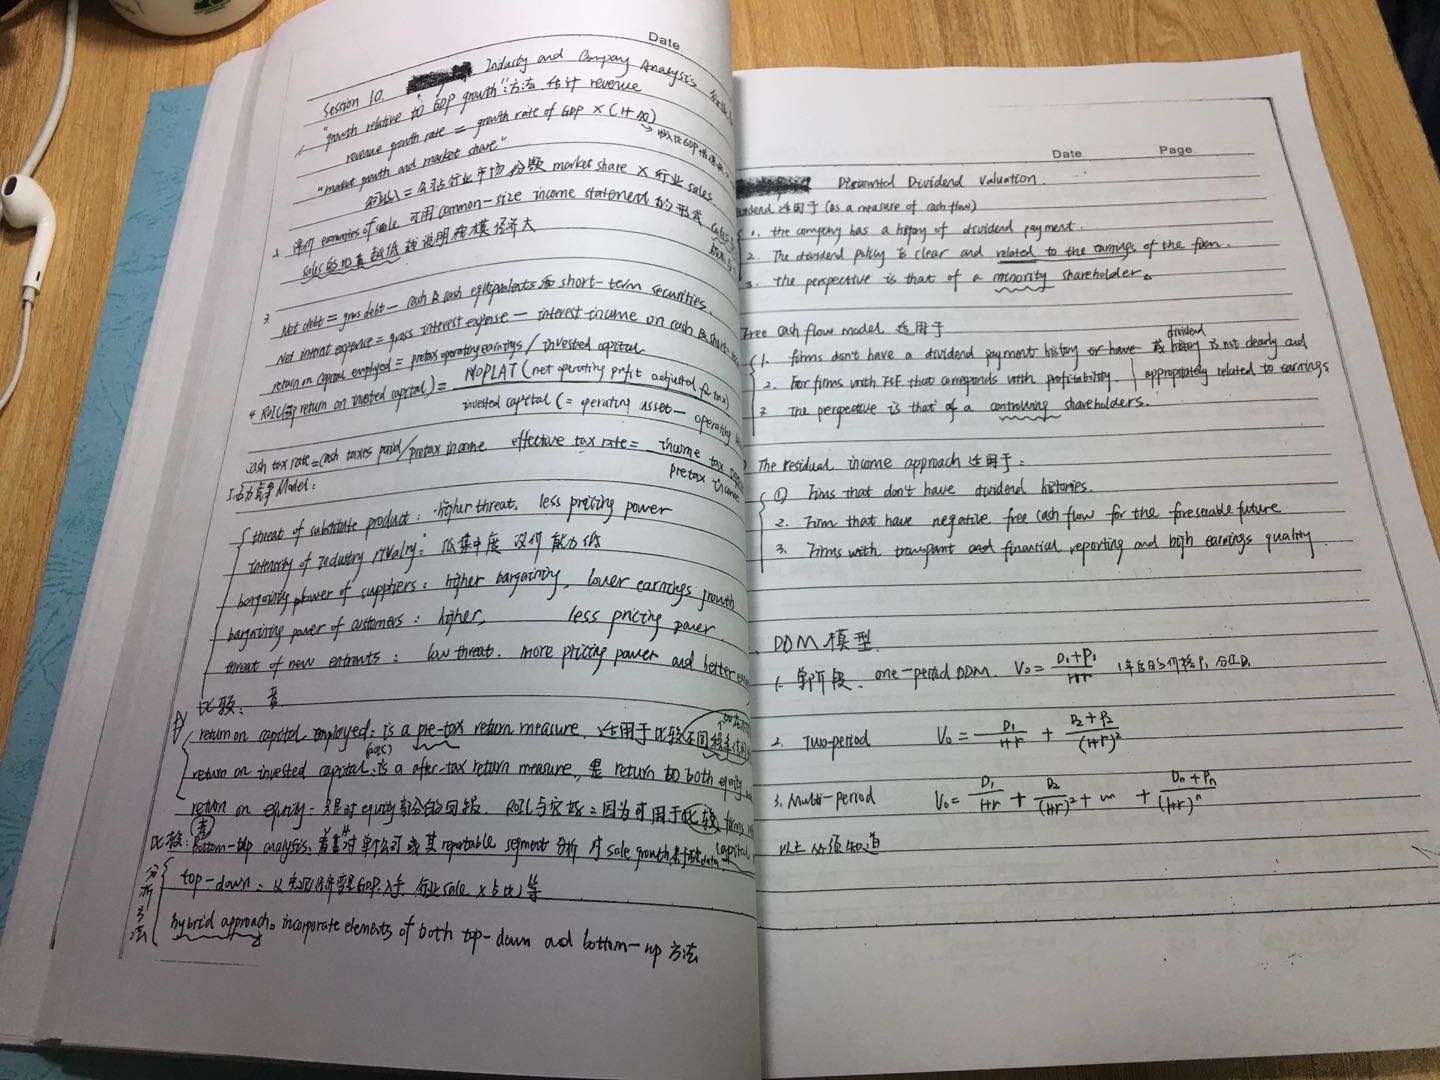 Date
Session 10. Industry and Company Analysis
"growth relative to GDP growth"方法 估计 revenue
revenue growth rate = growth rate of GDP × (1+X)
"market growth and market share"
公司收入 = 公司占行业市场份额 market share × 行业 sales
2. 评价 economies of scale 可用 common-size income statement 的形式
sales 越低 越说明规模经济大
3. Net debt = gross debt - cash & cash equivalents 和 short-term securities.
Net interest expense = gross interest expense - interest income on cash & short-
return on capital employed = pretax operating earnings / invested capital
4. ROIC (return on invested capital) = NOPLAT (net operating profit adjusted for tax)
invested capital (= operating asset - operating
cash tax rate = cash taxes paid / pretax income effective tax rate = income tax
pretax income
5. Model:
threat of substitute product: higher threat. less pricing power
intensity of industry rivalry: 低集中度 议价能力低
bargaining power of suppliers: higher bargaining, lower earnings growth
bargaining power of customers: higher, less pricing power.
threat of new entrants: low threat. more pricing power and better
比较:
return on capital employed: is a pre-tax return measure, 适用于比较不同税率
return on invested capital: is a after-tax return measure, 是 return to both equity
return on equity: 只是对 equity 部分的回报. ROIC 因为可用于比较 firms
capital
比较: Bottom-up analysis. 着重对单个公司或其 reportable segment 分析 sale growth
分析方法
top-down: 从宏观经济变量 GDP 入手. 行业 sale × 占比 等
hybrid approach. incorporate elements of both top-down and bottom-up 方法
Date Page
Discounted Dividend Valuation.
适用于 (as a measure of cash flow)
1. the company has a history of dividend payment.
2. The dividend policy is clear and related to the earnings of the firm.
3. the perspective is that of a minority shareholder.
Free cash flow model 适用于
1. firms don't have a dividend payment history or have dividend history is not clearly and
appropriately related to earnings
2. For firms with FCF that corresponds with profitability.
3. The perspective is that of a controlling shareholders.
The residual income approach 适用于:
① Firms that don't have dividend histories.
2. Firm that have negative free cash flow for the foreseeable future
3. Firms with transpant and financial reporting and high earnings quality.
DDM 模型.
1. 单阶段. one-period DDM. V₀ = D₁+P₁ / 1+r 1年后的价格P₁ 分红D₁
2. Two-period V₀ = D₁ / 1+r + D₂+P₂ / (1+r)²
3. Multi-period V₀ = D₁ / 1+r + D₂ / (1+r)² + ... + Dₙ+Pₙ / (1+r)ⁿ
以上必须知道